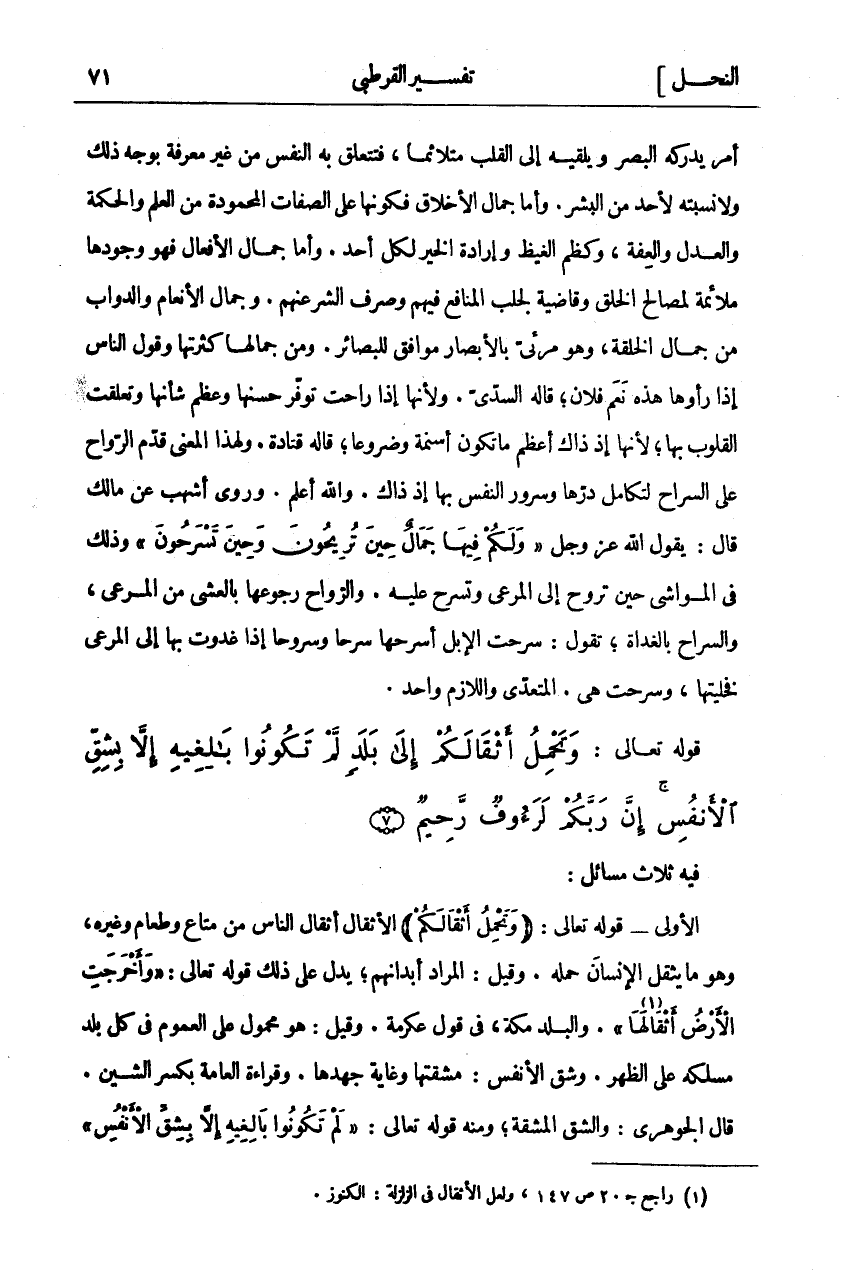 النحـــل ] تفســـير القرطبى ٧١
أمر يدركه البصر ويلقيـه إلى القلب متلائما ، فتتعلق به النفس من غير معرفة بوجه ذلك
ولا نسبته لأحد من البشر . وأما جمال الأخلاق فكونها على الصفات المحمودة من العلم والحكمة
والعـدل والعِفة ، وكظم الغيظ وإرادة الخير لكل أحد . وأما جمـال الأفعال فهو وجودها
ملائمة لمصالح الخلق وقاضية لجلب المنافع فيهم وصرف الشر عنهم . وجمال الأنعام والدواب
من جمـال الخلقة ، وهو مرئىّ بالأبصار موافق للبصائر . ومن جمالهـا كثرتها وقول الناس
إذا رأوها هذه نَعَم فلان ؛ قاله السدّى . ولأنها إذا راحت توفّر حسنها وعظم شأنها وتعلقت
القلوب بها ؛ لأنها إذ ذاك أعظم ما تكون أسنمة وضروعا ؛ قاله قتادة . ولهذا المعنى قدّم الرّواح
على السراح لتكامل درّها وسرور النفس بها إذ ذاك . والله أعلم . وروى أشهب عن مالك
قال : يقول الله عز وجل « وَلَكُمْ فِيهَـا جَمَالٌ حِينَ تُرِيحُونَ وَحِينَ تَسْرَحُونَ » وذلك
فى المـواشى حين تروح إلى المرعى وتسرح عليـه . والرّواح رجوعها بالعشى من المـرعى ،
والسراح بالغداة ؛ تقول : سرحت الإبل أسرحها سرحا وسروحا إذا غدوت بها إلى المرعى
فخليتها ، وسرحت هى . المتعدّى واللازم واحد .
قوله تعـالى : وَتَحْمِلُ أَثْقَالَكُمْ إِلَىٰ بَلَدٍ لَّمْ تَكُونُوا بَـٰلِغِيهِ إِلَّا بِشِقِّ
ٱلْأَنفُسِ ۚ إِنَّ رَبَّكُمْ لَرَءُوفٌ رَّحِيمٌ ﴿٧﴾
فيه ثلاث مسائل :
الأولى ــ قوله تعالى : ﴿وَتَحْمِلُ أَثْقَالَكُمْ﴾ الأثقال أثقال الناس من متاع وطعام وغيره ،
وهو ما يثقل الإنسانَ حمله . وقيل : المراد أبدانهم ؛ يدل على ذلك قوله تعالى : «وَأَخْرَجَتِ
الْأَرْضُ أَثْقَالَهَا (١) » . والبـلد مكة ، فى قول عكرمة . وقيل : هو محمول على العموم فى كل بلد
مسلكه على الظهر . وشق الأنفس : مشقتها وغاية جهدها . وقراءة العامة بكسر الشـين .
قال الجوهرى : والشق المشقة ؛ ومنه قوله تعالى : « لَمْ تَكُونُوا بَالِغِيهِ إِلَّا بِشِقِّ الْأَنْفُسِ »
(١) راجع جـ ٢٠ ص ١٤٧ ، ولعل الأثقال فى الزلزلة : الكنوز .